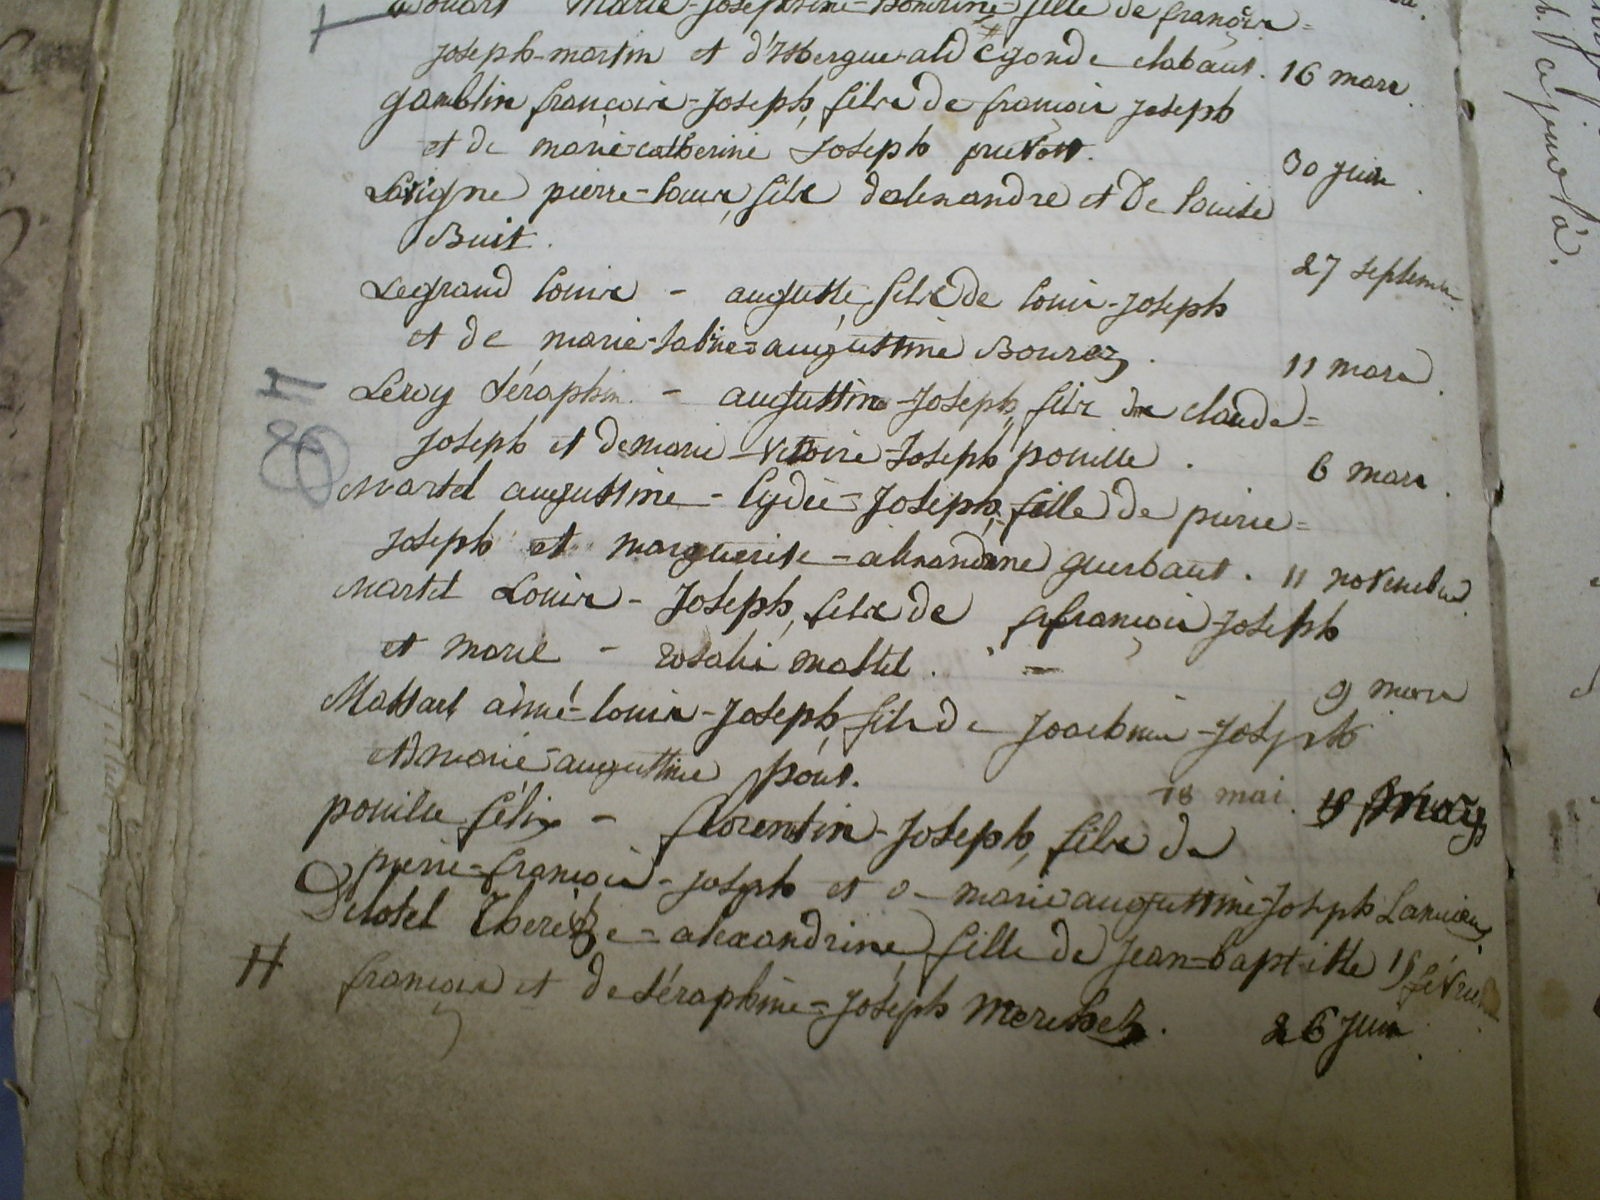 Marie-Joséphine- fille de françois=
joseph-martin et d'Isbergue-ald egonde clabaut. 16 mars
gamblin françois-Joseph, fils de françois joseph
et de marie catherine Joseph pruvost. 30 juin
Lavigne pierre-louis, fils d'alexandre et De louise
Buit. 27 septembre
Legrand louis - auguste, fils de louis-joseph
et de marie-sabine=augustine Bourez. 11 mars
Leroy Séraphin - augustin-Joseph, fils de claude=
joseph et de marie-victoire-Joseph pouille. 6 mars
Martel augustine-lydie=Joseph, fille de pierre=
joseph et marguerite-alexandrine guerbaut. 11 novembre
Martel Louis-Joseph, fils de françois-joseph
et marie - rosalie martel. 9 mars
Massart aimé-louis-Joseph, fils de Joachim-Joseph
et marie-augustine pont. 18 mai.
pouille félix - florentin-Joseph, fils de
pierre-françois-joseph et marie augustine-Joseph 15 février
Delotel Thérèse=alexandrine, fille de jean=baptiste
françois et de séraphine=Joseph 26 juin
H